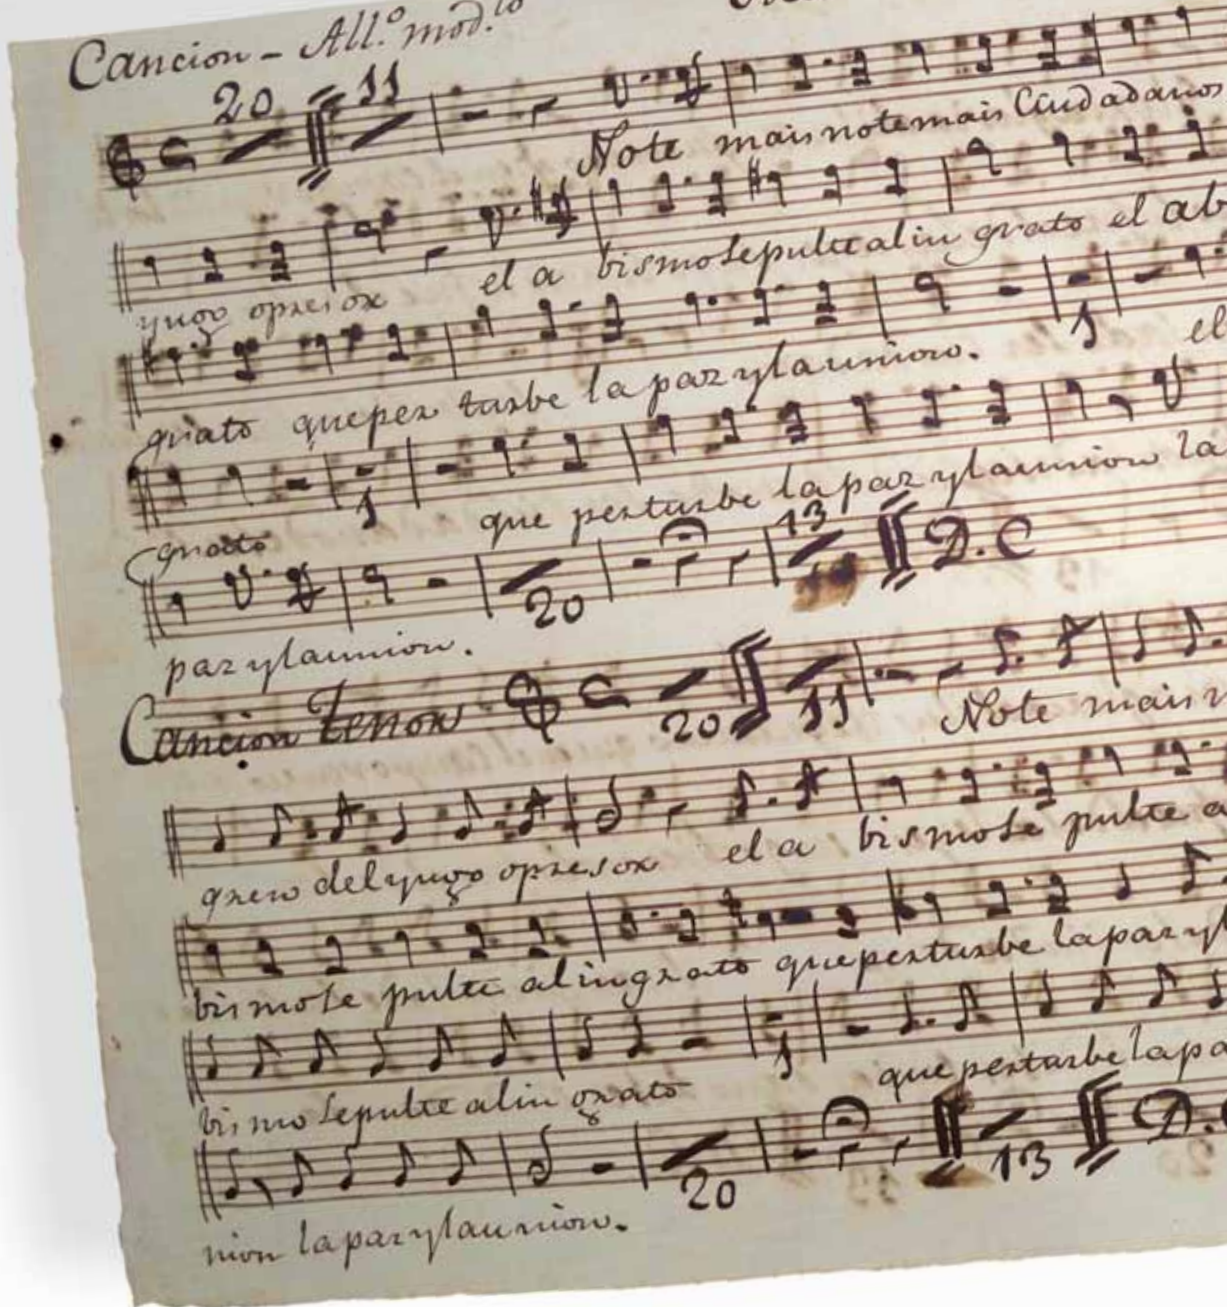 Cancion - All.º mod.to
20 11
Note mais notemais Ciudadanos
yugo opresor el a bismosepultealin grato el ab
grato queper turbe la paz ylaunion. 1 el
grato 1 que perturbe lapaz ylaunion la
13 D. C
20
paz ylaunion.
Cancion Tenor 20 11 Note mais
grero delyugo opresor el a bismose pulte a
bismose pulte alingrato queperturbe lapazyl
1
bismosepultealin grato queperturbelapa
20 13 D.
nion lapazylaunion.